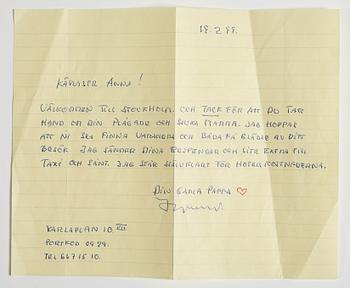 19.2.99.
KÄRASTE ANNA!
VÄLKOMMEN TILL STOCKHOLM. OCH TACK FÖR ATT DU TAR
HAND OM DIN PLÅGADE OCH SJUKA MAMMA. JAG HOPPAS
ATT NI SKA FINNA VARANDRA OCH BÅDA FÅ GLÄDJE AV DITT
BESÖK. JAG SÄNDER DINA RESPENGAR OCH LITE EXTRA TILL
TAXI OCH SÅNT. JAG STÅR SJÄLVKLART FÖR HOTELLKOSTNADERNA.
DIN GAMLA PAPPA
Ingmar
KARLAPLAN 10. VIII
PORTKOD 09 29.
TEL 667 15 10.